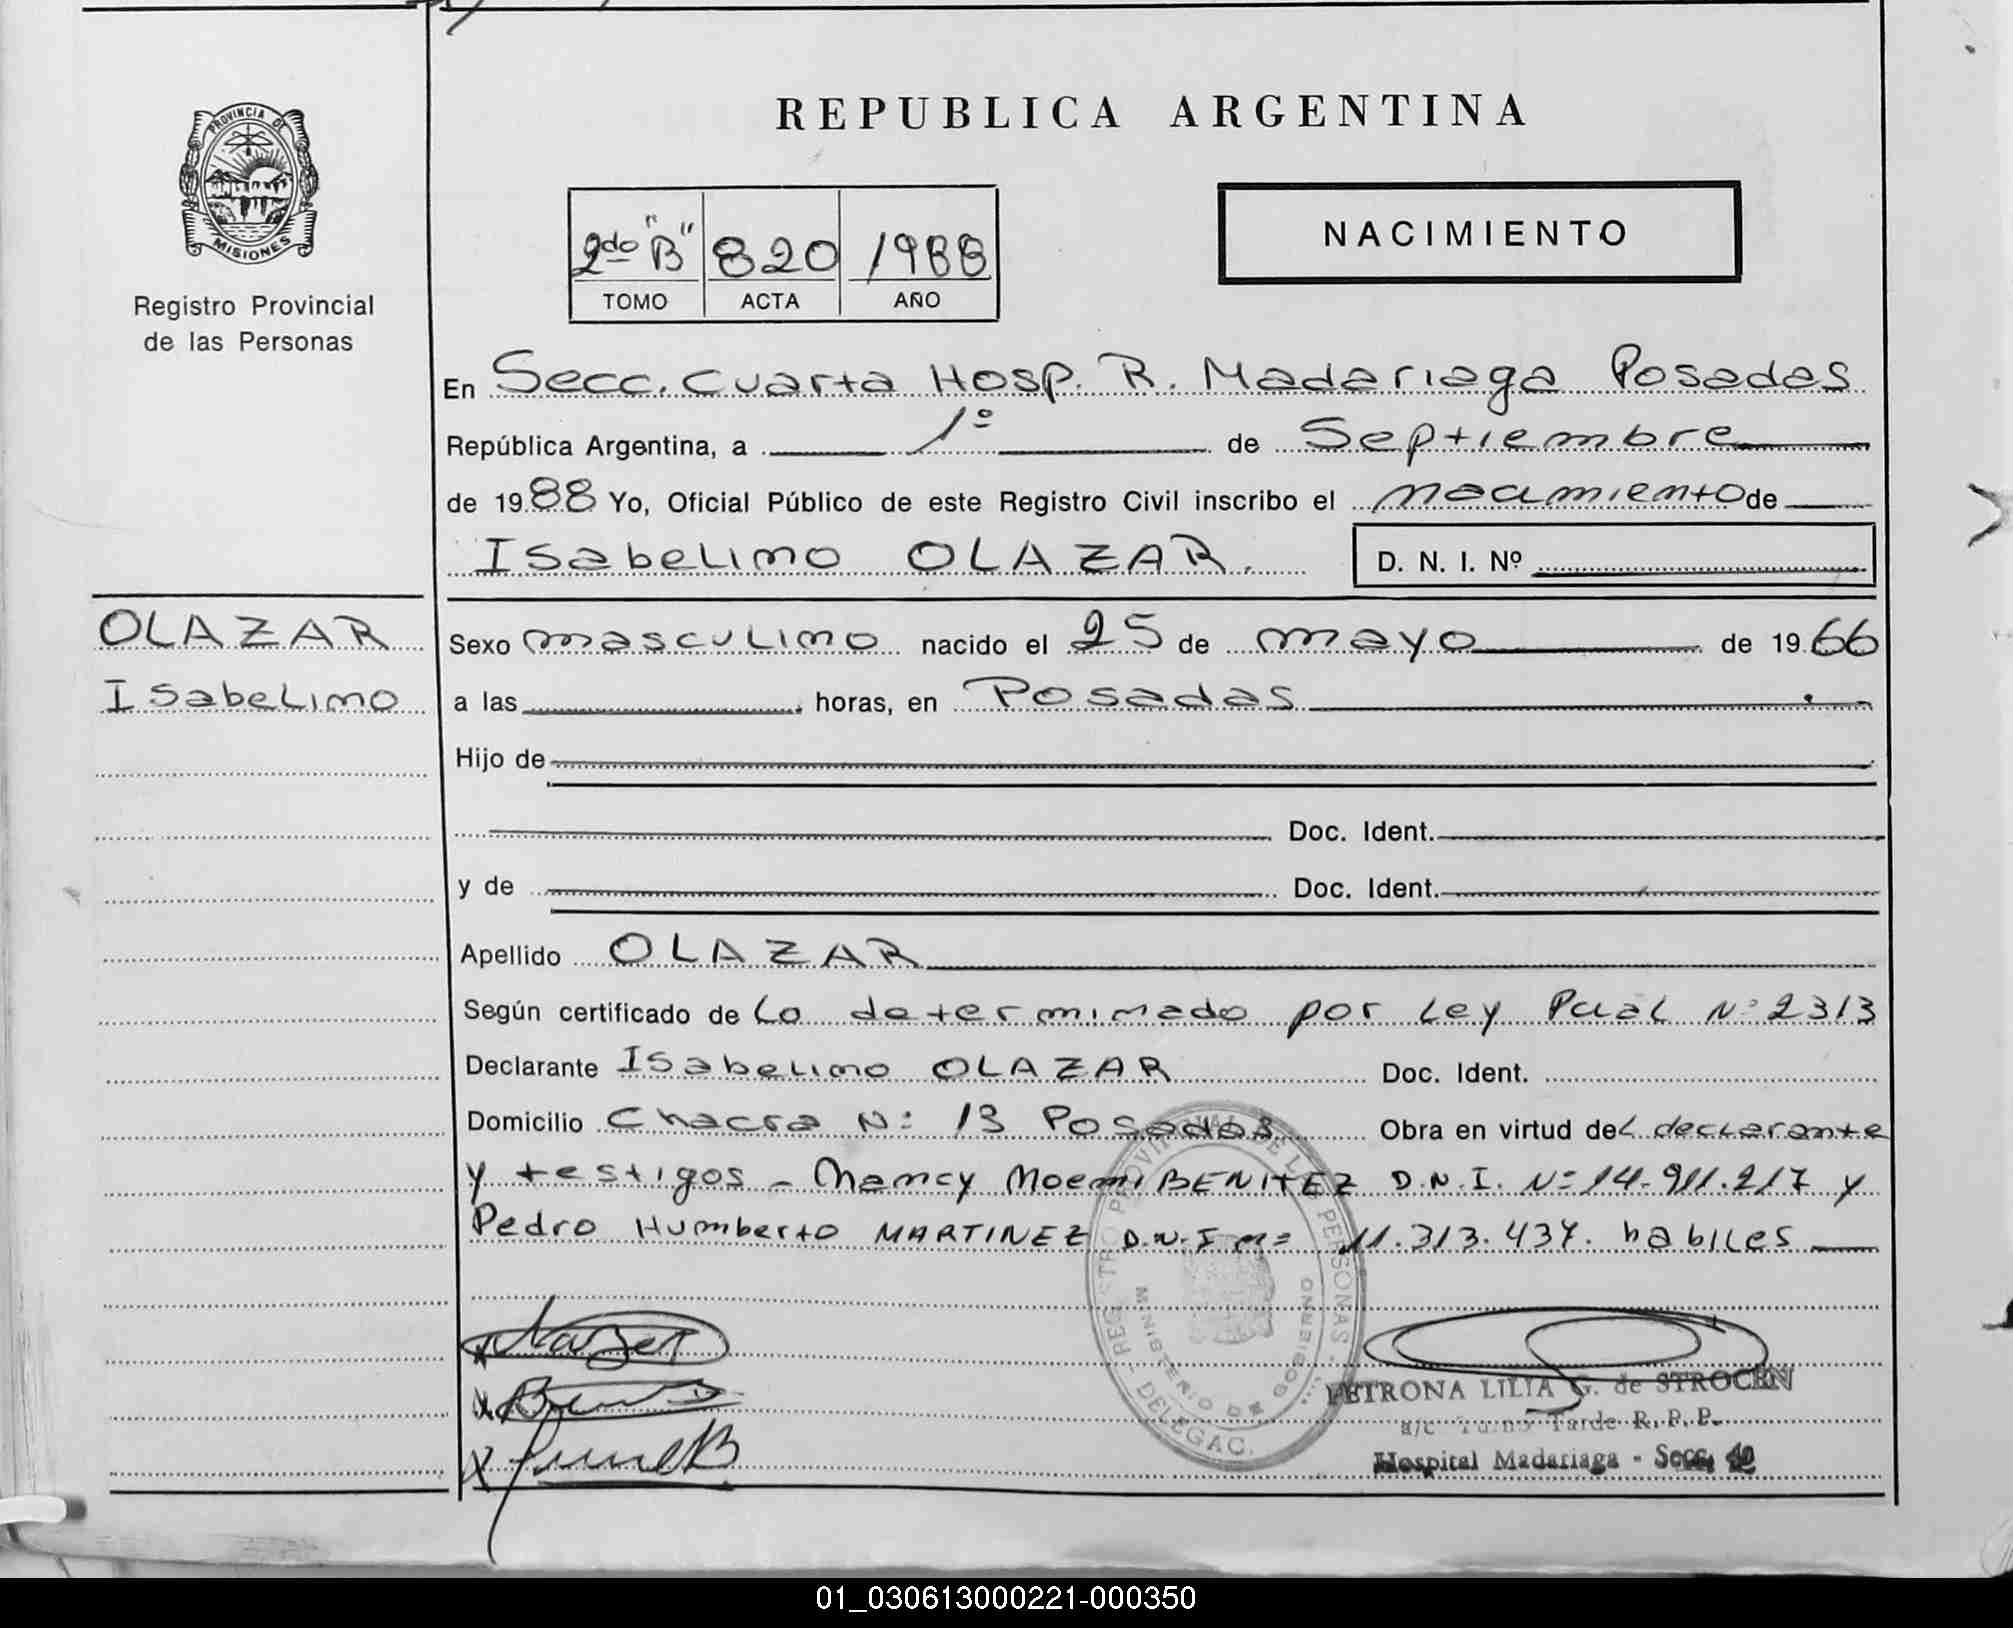 PROVINCIA DE
MISIONES
Registro Provincial
de las Personas
OLAZAR
Isabelino
REPUBLICA ARGENTINA
2do "B" 820 1988
TOMO ACTA AÑO
NACIMIENTO
En Secc. Cuarta Hosp. R. Madariaga Posadas
República Argentina, a 1º de Septiembre
de 1988 Yo, Oficial Público de este Registro Civil inscribo el nacimiento de
Isabelino OLAZAR.
D. N. I. Nº
Sexo masculino nacido el 25 de mayo de 1966
a las horas, en Posadas
Hijo de
Doc. Ident.
y de Doc. Ident.
Apellido OLAZAR
Según certificado de Lo determinado por Ley Pcial Nº 2313
Declarante Isabelino OLAZAR Doc. Ident.
Domicilio Chacra Nº 13 Posadas Obra en virtud del declarante
y testigos - Nancy Noemi BENITEZ D.N.I. Nº 14.911.217 y
Pedro Humberto MARTINEZ D.N.I nº 11.313.437. habiles
REGISTRO PROVINCIAL DE LAS PERSONAS
MINISTERIO DE GOBIERNO
DELEGAC.
PETRONA LILIA G. de STROCEN
a/c Turno Tarde R.P.P.
Hospital Madariaga - Secc. 4a
01_030613000221-000350